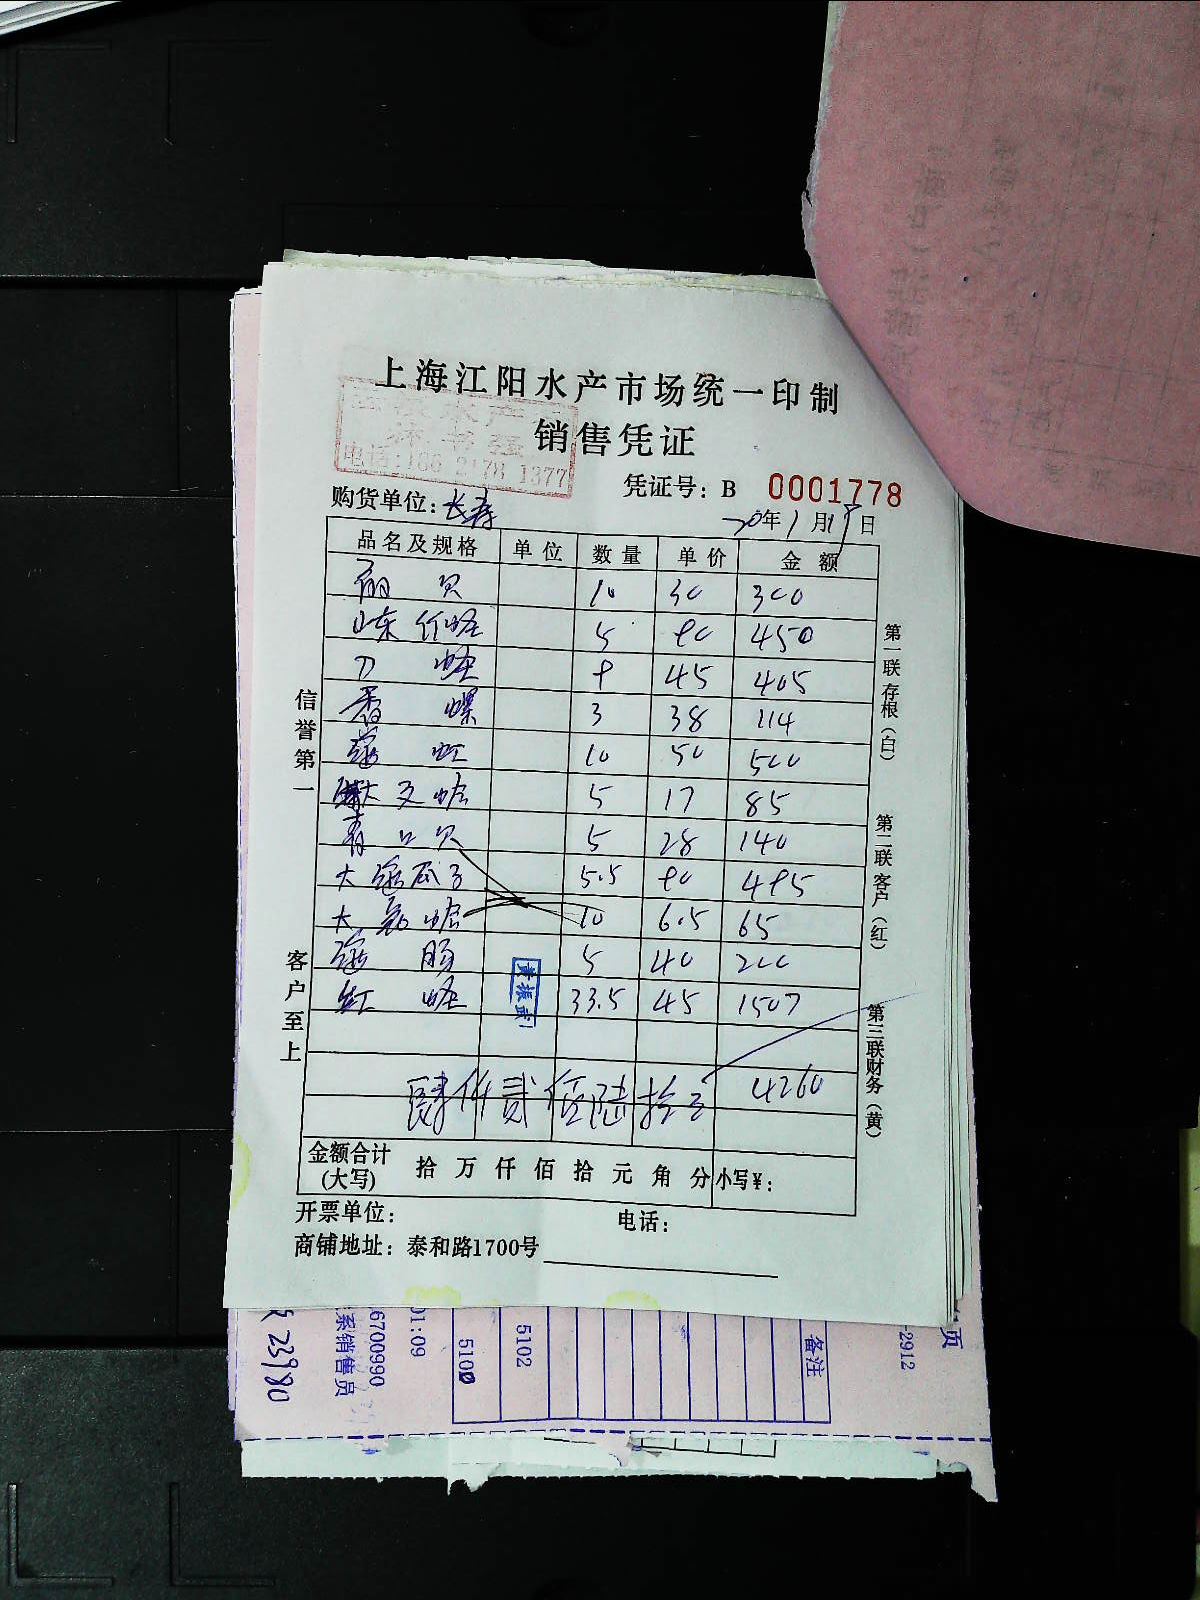 上海江阳水产市场统一印制
销售凭证
水产
电话:166 2178 1377
凭证号: B 0001778
购货单位: 长寿
20年1月19日
品名及规格 单位 数量 单价 金额
贝 10 30 300
山东竹蛏 5 90 450
刀蛏 9 45 405
香螺 3 38 114
虹 10 50 500
文蛤 5 17 85
青口贝 5 28 140
大海瓜子 5.5 90 495
大 蛤 10 6.5 65
海肠 5 40 200
红蛏 33.5 45 1507
肆仟贰佰陆拾 4260
黄振武
金额合计(大写) 拾 万 仟 佰 拾 元 角 分 小写¥:
开票单位: 电话:
商铺地址: 泰和路1700号
信誉第一
客户至上
第一联存根(白)
第二联客户(红)
第三联财务(黄)
23980
系销售员
6700990
01:09
5100
5102
备注
-2912
页